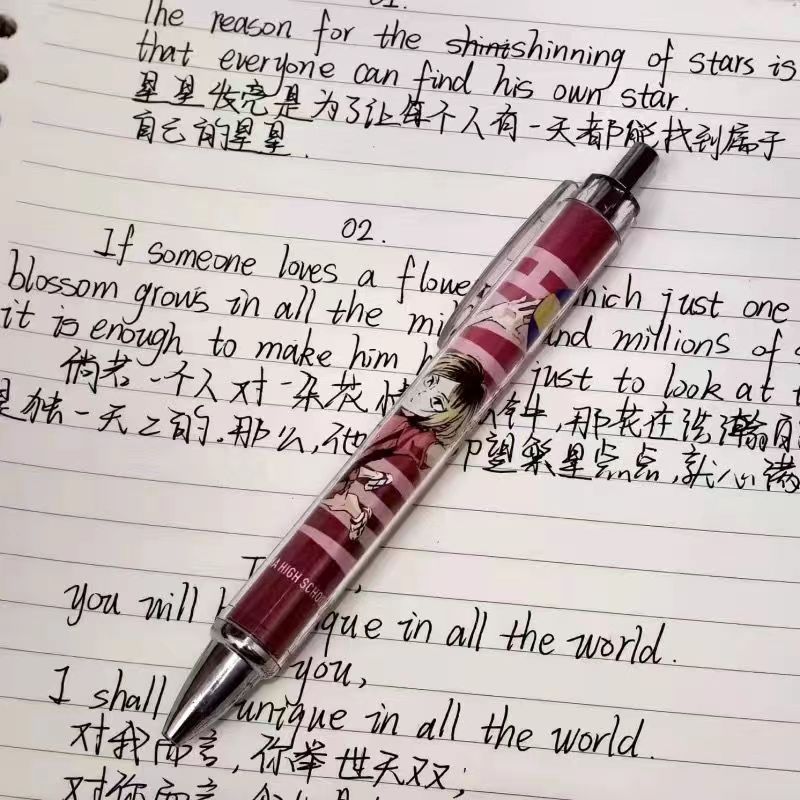 01.
The reason for the shinishinning of stars is
that everyone can find his own star.
星星发亮是为了让每个人有一天都能找到属于
自己的星星.
02.
If someone loves a flowe which just one
blossom grows in all the mi and millions of
it is enough to make him h just to look at t
倘若一个人对一朵花情 那花在浩瀚
是独一无二的.那么,他 望繁星点点,就心满
A HIGH SCHOO
you will que in all the world.
you,
I shall unique in all the world.
对我而言,你举世无双;
对你而言,